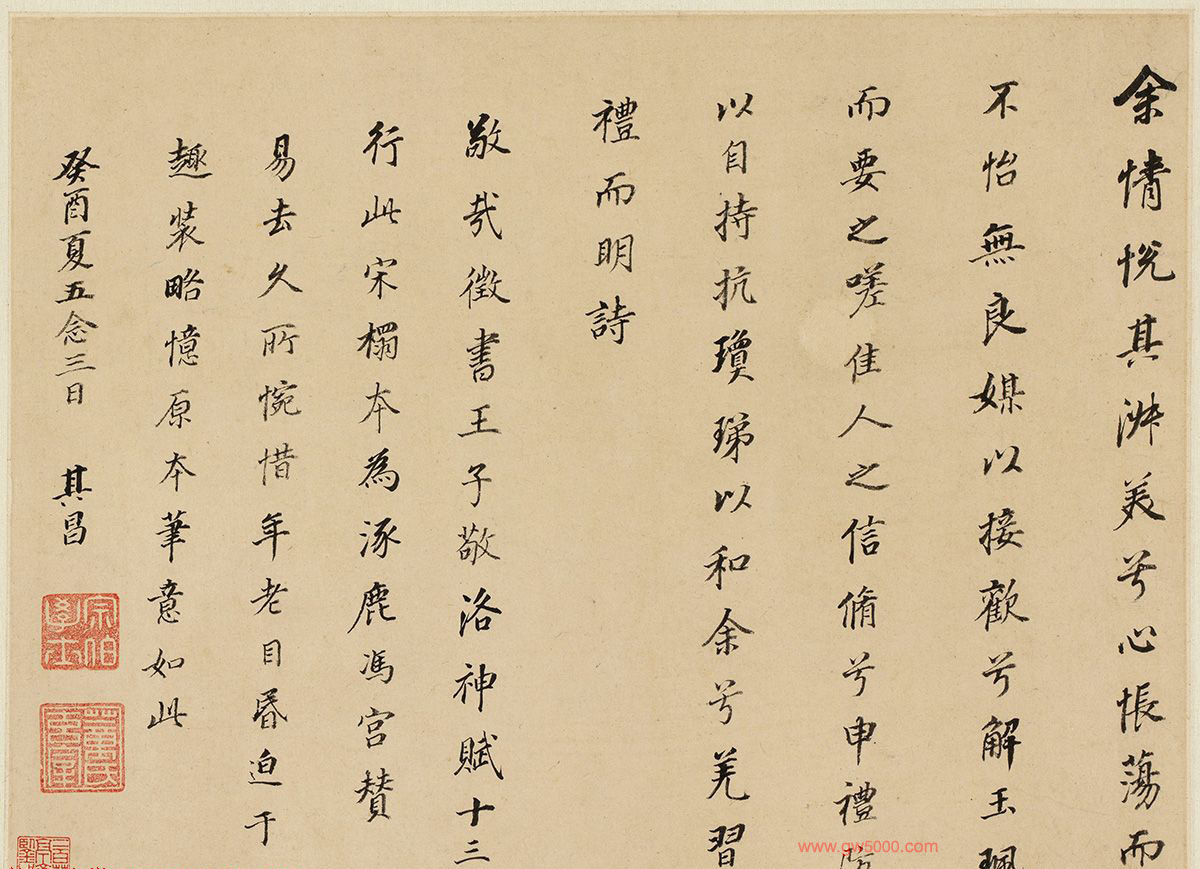 余情悅其淑美兮心悵蕩而
不怡無良媒以接歡兮解玉珮
而要之嗟佳人之信脩兮申禮防
以自持抗瓊珶以和余兮羌習
禮而明詩
敬哉徵書王子敬洛神賦十三
行此宋榻本為涿鹿馮宮贊
易去久所惋惜年老目昏迫于
趣裝略憶原本筆意如此
癸酉夏五念三日 其昌
宗伯學士
www.gw5000.com